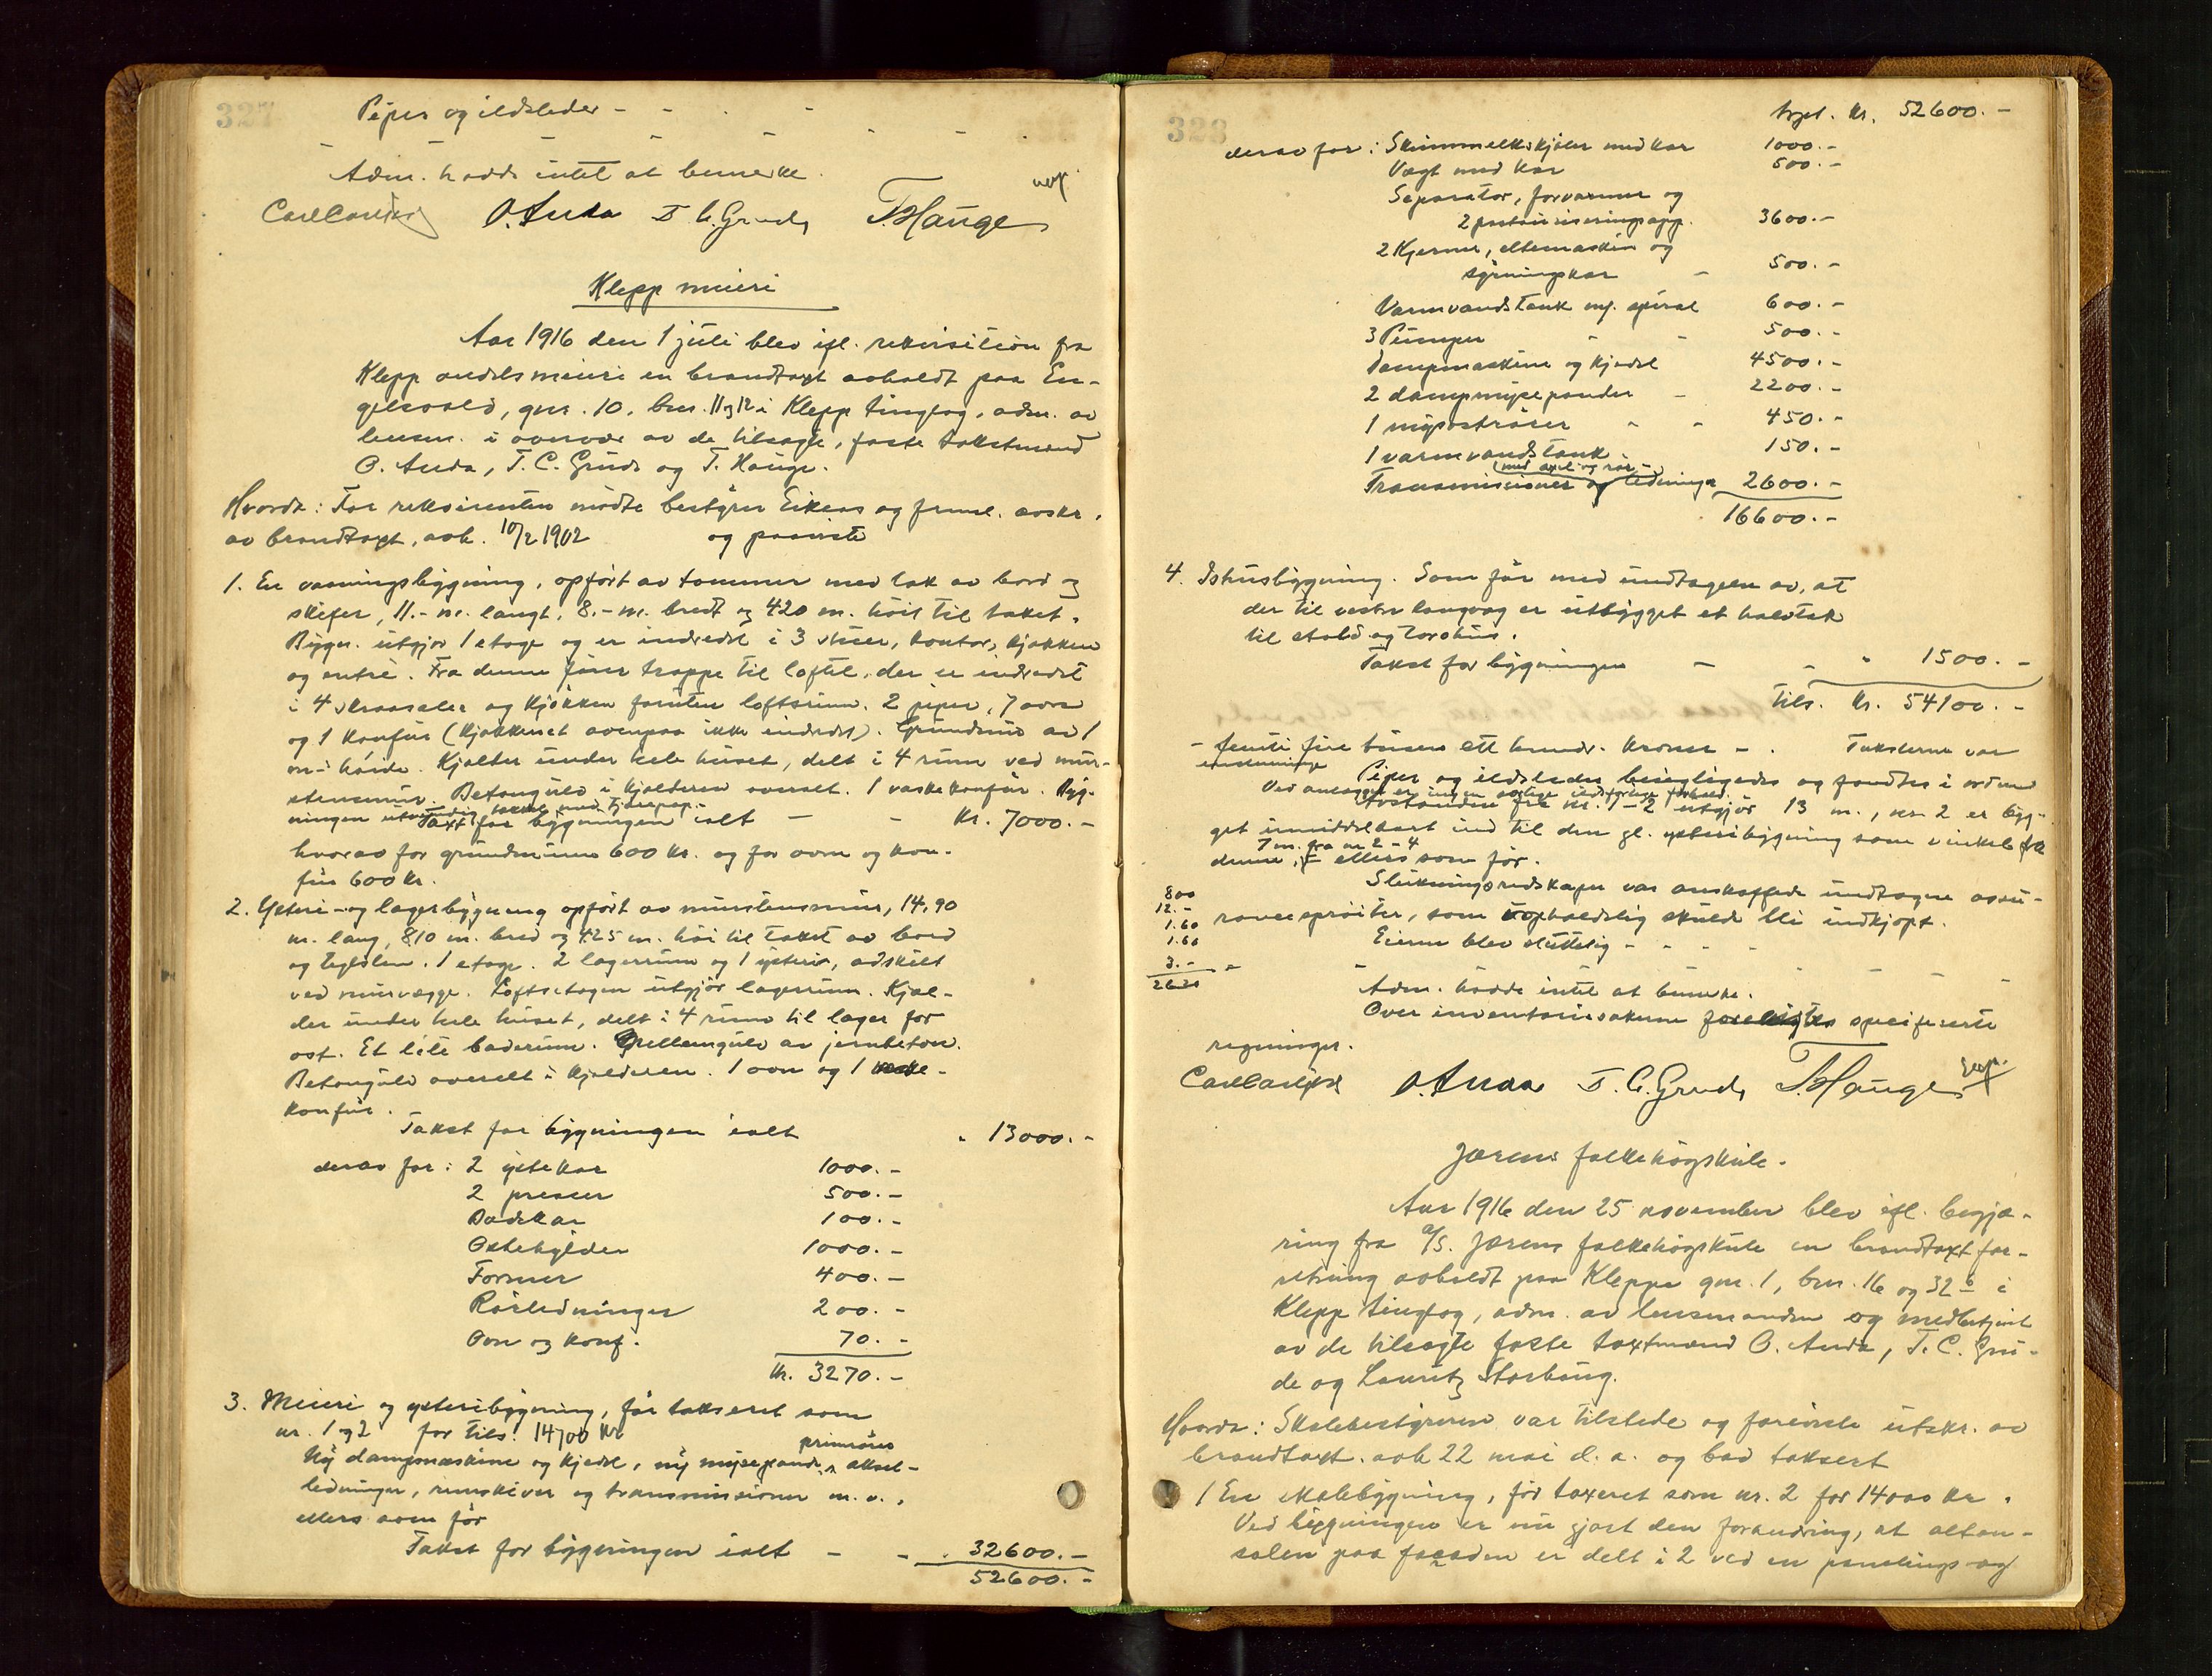 327
Piper og ildsleder - - - -
- - - - - -
Adm. hadde intet at bemerke.
Carl Carlsen O. Anda T. C. Grude T. Hauge
Klepp meieri
Aar 1916 den 1 juli blev ifl. rekvisition fra
Klepp andelsmeieri en brandtaxt avholdt paa En-
gelsvold, gnr. 10, bnr. 11 og 12 i Klepp tinglag, adm. av
lensm. i overvær av de tilsagte, faste takstmænd
O. Anda, T. C. Grude og T. Hauge.
Hvorda: For rekvirenten mødte bestyrer Eikeas og freml. avskr.
av brandtaxt, avh. 10/2 1902 og paaviste
1. En vaaningsbygning, opført av tømmer med tak av bord og
skifer, 11.- m. langt, 8.- m. bredt og 420 m. höit til taket.
Bygn. utgjør 1 etage og er indredet i 3 stuer, kontor, kjøkken
og entré. Fra denne fører trappe til loftet, der er indredet
i 4 skraasaler og kjøkken foruten loftsrum. 2 piper, 7 ovne
og 1 komfur (kjøkkenet ovenpaa ikke indredet). Grundmur av 1
m-s höide. Kjelder under hele huset, delt i 4 rum ved mur-
stensmur. Betongulv i kjelderen overalt. 1 vaskekomfur. Byg-
ningen utvendig tækket med tjærepap.
Taxt for bygningen ialt - - Kr. 7000.-
hvorav for grundmuren 600 kr. og for ovne og kom-
fur 600 kr.
2. Ysteri- og lagerbygning opført av murstensmur, 14,90
m. lang, 810 m. bred og 425 m. höi til taket av bord
og teglsten. 1 etage. 2 lagerrum og 1 ysteri, adskilt
ved murvægge. Loftsetagen utgjør lagerrum. Kjel-
der under hele huset, delt i 4 rum til lager for
ost. Et lite baderum. Mellemgulv av jernbeton.
Betongulv overalt i kjelderen. 1 ovn og 1 vaske-
komfur.
Takst for bygningen ialt " 13000.-
derav for: 2 ystekar 1000.-
2 presser 500.-
Badekar 100.-
Ostehylder 1000.-
Former 400.-
Rörledninger 200.-
Ovn og komf. 70.-
Kr. 3270.-
3. Meieri og ysteribygning, før takseret som
nr. 1 og 2 for tils. 14700 kr
Ny dampmaskine og kjedel, ny mysepande, aksel-
ledninger, remskiver og transmissioner m. v.,
ellers som før
Takst for bygningen ialt - - " 32600.-
52600.-
328
Trpt. Kr. 52600.-
derav for: Skummelkskjøler med kar 1000.-
Vægt med kar 500.-
Separator, forvarmer og
2 pasteuriseringsapp. 3600.-
2 Kjerner, eltemaskin og
syrningskar - 500.-
Varmvandstank m/. spiral 600.-
3 Pumper " - 500.-
Dampmaskine og kjedel 4500.-
2 dampmysepander - 2200.-
1 myseoströrer " - 450.-
1 varmvandstank - 150.-
(med axel og rør)
Transmissioner og ledninger 2600.-
16600.-
4. Ishusbygning. Som før med undtagelse av, at
der til vestre langvæg er utbygget et halvtak
til stald og torvhus.
Takst for bygningen - - " 1500.-
Tils. Kr. 54100.-
- femti fire tusen ett hundr. kroner - . Taksterne var
enstemmige
Piper og ildsteder besigtigedes og fandtes i orden
Ved anlægget er ingen særlige ildsfarlige forhold.
Avstanden fra nr. 1-2 utgjör 13 m., nr. 2 er byg-
get umiddelbart ind til den gl. ysteribygning som vinkel fra
7 m. fra nr 2-4
denne, ellers som før.
Slukningsredskaper var anskaffede undtagen assu-
800
12.-
1.60
1.60
3.-
rancesprøiter, som uopholdelig skulde bli indkjøpt.
Eieren blev sluttelig - - - -
- - - - -
Adm. hadde intet at bemerke.
Over inventariesakerne forelagdes specifiserte
regninger.
Carl Carlsen O. Anda T. C. Grude T. Hauge
Jærens folkehögskule.
Aar 1916 den 25 november blev ifl. begjæ-
ring fra A/S. Jærens folkehögskule en brandtaxtfor-
retning avholdt paa Kleppe gnr. 1, bnr. 16 og 32 b i
Klepp tinglag, adm. av lensmanden og medbetjent
av de tilsagte faste taxtmænd O. Anda, T. C. Gru-
de og Lauritz Storhaug.
Hvorda: Skolebestyreren var tilstede og foreviste utskr. av
brandtaxt avh 22 mai d. a. og bad taksert
1 En skolebygning, før taxeret som nr. 2 for 14000 kr.
Ved bygningen er nu gjort den forandring, at altan-
salen paa facaden er delt i 2 ved en panelings-væg